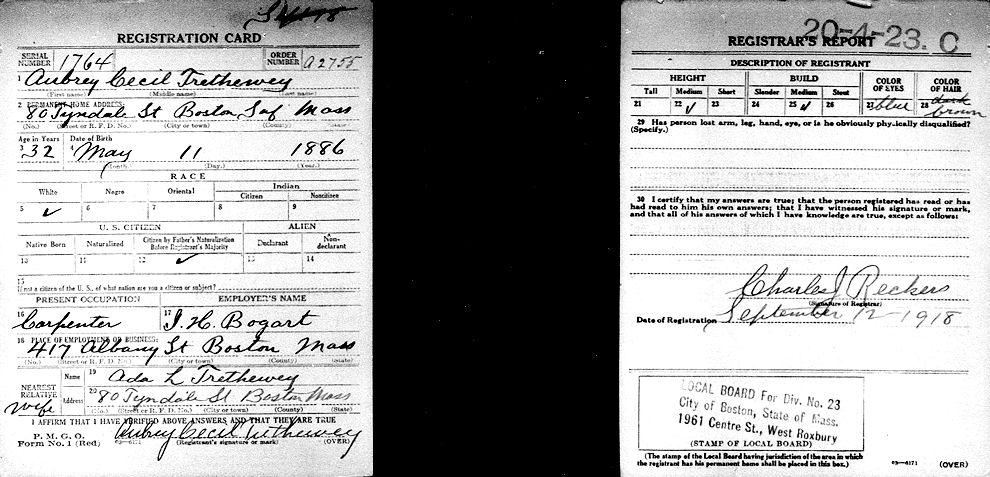 REGISTRATION CARD
SERIAL NUMBER 1764 ORDER NUMBER A2755
1 Aubrey Cecil Trethewey
(First name) (Middle name) (Last name)
2 PERMANENT HOME ADDRESS:
80 Tyndale St Boston Suf Mass
(No.) (Street or R. F. D. No.) (City or town) (County) (State)
Age in Years Date of Birth
3 32 4 May 11 1886
(Month.) (Day.) (Year.)
RACE
White Negro Oriental Indian
Citizen Noncitizen
5 ✓ 6 7 8 9
U. S. CITIZEN ALIEN
Native Born Naturalized Citizen by Father's Naturalization Before Registrant's Majority Declarant Non-declarant
10 11 12 ✓ 13 14
15
If not a citizen of the U. S., of what nation are you a citizen or subject?
PRESENT OCCUPATION EMPLOYER'S NAME
16 Carpenter 17 J. H. Bogart
18 PLACE OF EMPLOYMENT OR BUSINESS:
417 Albany St Boston Mass
(No.) (Street or R. F. D. No.) (City or town) (County) (State)
NEAREST RELATIVE Name 19 Ada L Trethewey
Wife Address 20 80 Tyndale St Boston Mass
(No.) (Street or R. F. D. No.) (City or town) (County) (State)
I AFFIRM THAT I HAVE VERIFIED ABOVE ANSWERS AND THAT THEY ARE TRUE
P. M. G. O.
Form No. 1 (Red) 03-6171 Aubrey Cecil Trethewey
(Registrant's signature or mark) (OVER)
20-4-23. C
REGISTRAR'S REPORT
DESCRIPTION OF REGISTRANT
HEIGHT BUILD COLOR OF EYES COLOR OF HAIR
Tall Medium Short Slender Medium Stout
21 22 ✓ 23 24 25 ✓ 26 27 blue 28 dark brown
29 Has person lost arm, leg, hand, eye, or is he obviously physically disqualified?
(Specify.)
30 I certify that my answers are true; that the person registered has read or has
had read to him his own answers; that I have witnessed his signature or mark,
and that all of his answers of which I have knowledge are true, except as follows:
Charles J Reckers
(Signature of Registrar)
Date of Registration September 12 - 1918
LOCAL BOARD For Div. No. 23
City of Boston, State of Mass.
1961 Centre St., West Roxbury
(STAMP OF LOCAL BOARD)
(The stamp of the Local Board having jurisdiction of the area in which
the registrant has his permanent home shall be placed in this box.) 03-6171 (OVER)